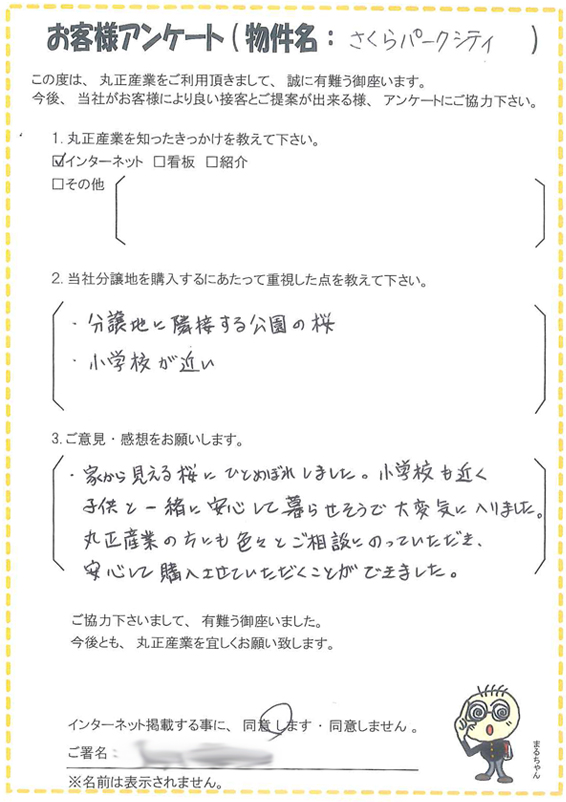 お客様アンケート(物件名:さくらパークシティ)
この度は、丸正産業をご利用頂きまして、誠に有難う御座います。
今後、当社がお客様により良い接客とご提案が出来る様、アンケートにご協力下さい。
1.丸正産業を知ったきっかけを教えて下さい。
☑インターネット □看板 □紹介
□その他
2.当社分譲地を購入するにあたって重視した点を教えて下さい。
・分譲地に隣接する公園の桜
・小学校が近い
3.ご意見・感想をお願いします。
・家から見える桜にひとめぼれしました。小学校も近く
子供と一緒に安心して暮らせそうで大変気に入りました。
丸正産業の方にも色々とご相談にのっていただき、
安心して購入させていただくことができました。
ご協力下さいまして、有難う御座いました。
今後とも、丸正産業を宜しくお願い致します。
インターネット掲載する事に、同意します・同意しません。
ご署名:
※名前は表示されません。
まるちゃん